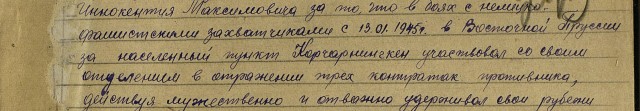 Иннокентия Максимовича за то, что в боях с немецко-
фашистскими захватчиками с 13.01.1945г. в Восточной Пруссии
за населенный пункт Карчарнинкен участвовал со своим
отделением в отражении трех контратак противника,
действуя мужественно и отважно удерживал свои рубежи